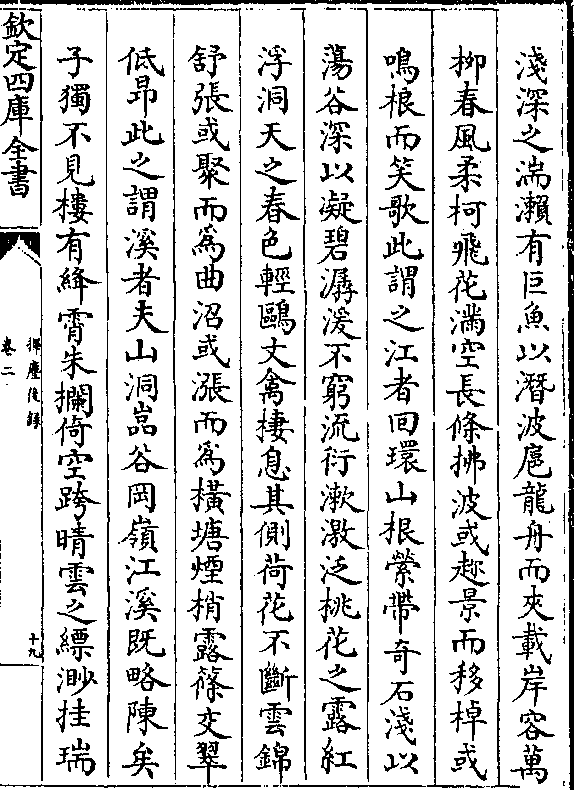 淺深之湍瀨有巨魚以潛波扈龍舟而夾載岸容萬
栁春風柔柯飛花滿空長條拂波或趂景而移棹或
鳴榔而笑歌此謂之江者回環山根縈帶竒石淺以
蕩谷深以凝碧潺湲不窮流衍漱激泛桃花之露紅
浮洞天之春色輕鷗文禽棲息其側荷花不斷雲錦
舒張或聚而為曲沼或漲而為橫塘煙梢露篠交翠
低昻此之謂溪者夫山洞嵓谷岡嶺江溪既略陳矣
子獨不見樓有絳霄朱欄倚空跨晴雲之縹渺挂瑞
欽定四庫全書
揮麈後錄
卷二
十九